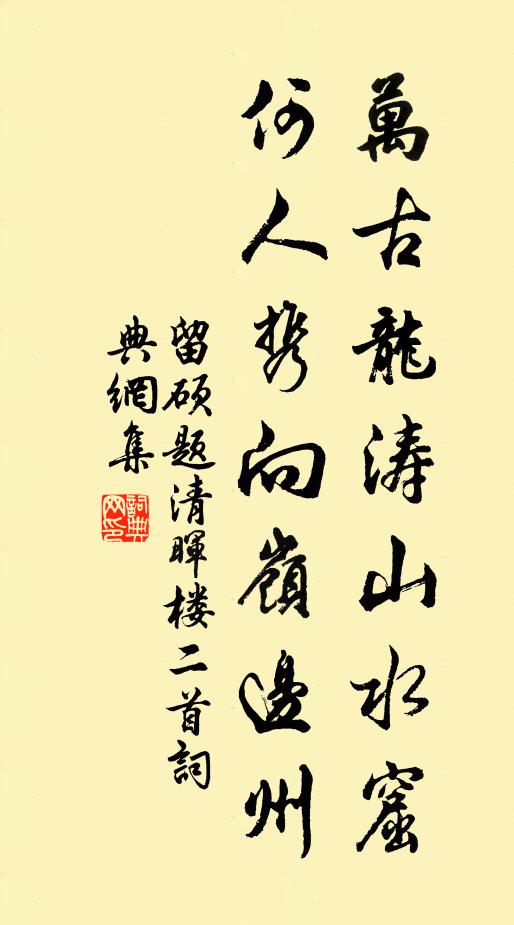 萬古龍濤山水窟
何人携向嶺邊州
留碩題清暉楼二首詞
典網集
詞典網印